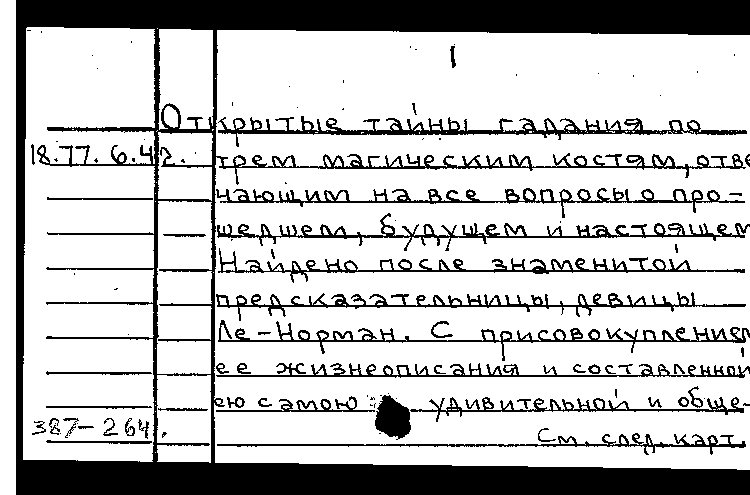 1
Открытые тайны гадания по
18.77.6.42. трем магическим костям, отве
чающим на все вопросы о про-
шедшем, будущем и настоящем
Найдено после знаменитой
предсказательницы, девицы
Ле-Норман. С присовокуплением
ее жизнеописания и составленной
ею самою удивительной и обще-
387-264. См. след. карт.